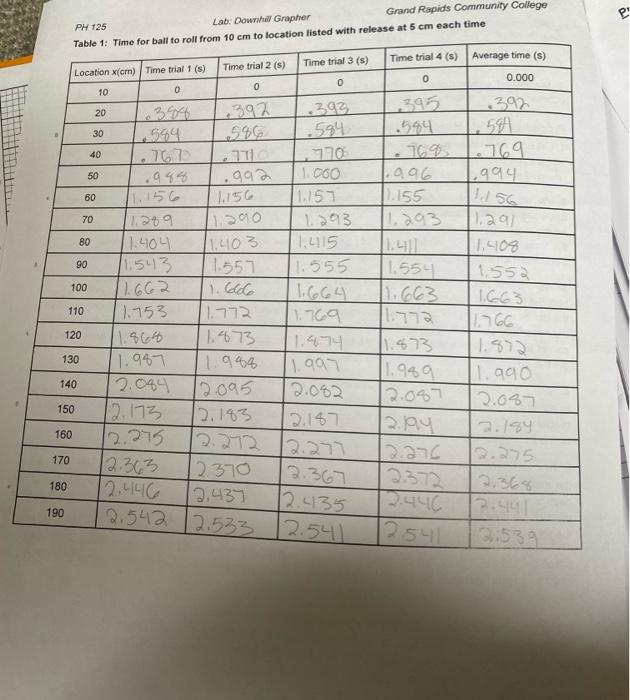 PH 125 Lab: Downhill Grapher Grand Rapids Community College
Table 1: Time for ball to roll from 10 cm to location listed with release at 5 cm each time
Location x(cm) Time trial 1 (s) Time trial 2 (s) Time trial 3 (s) Time trial 4 (s) Average time (s)
10 0 0 0 0 0.000
20 .388 .392 .393 .395 .392
30 .584 .586 .584 .584 .584
40 .767 .771 .770 .768 .769
50 .988 .992 1.000 .996 .994
60 1.156 1.156 1.157 1.155 1.156
70 1.289 1.290 1.293 1.293 1.291
80 1.404 1.403 1.415 1.411 1.408
90 1.543 1.557 1.555 1.554 1.552
100 1.662 1.666 1.664 1.663 1.663
110 1.753 1.772 1.769 1.772 1.766
120 1.868 1.873 1.874 1.873 1.872
130 1.987 1.988 1.997 1.989 1.990
140 2.084 2.095 2.082 2.087 2.087
150 2.173 2.183 2.187 2.194 2.184
160 2.275 2.272 2.277 2.276 2.275
170 2.363 2.370 2.367 2.372 2.368
180 2.446 2.437 2.435 2.446 2.441
190 2.542 2.533 2.541 2.541 2.539